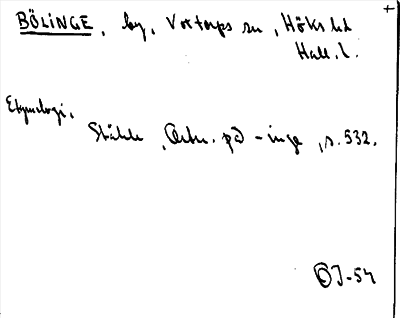 BÖLINGE, by, Voxtorps sn, Höks hd
Hall. l.
Etymologi.
Ståhle, Ortn. på -inge, s. 532.
OJ-54